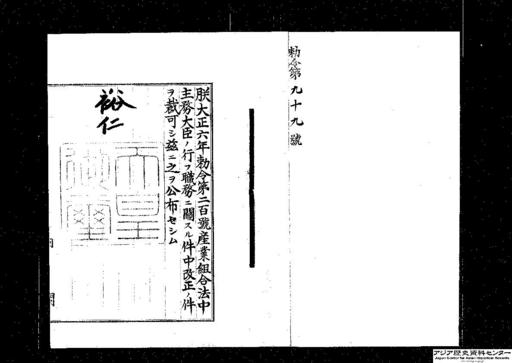 勅令第九十九號
朕大正六年勅令第二百號産業組合法中
主務大臣ノ行フ職務ニ關スル件中改正ノ件
ヲ裁可シ茲ニ之ヲ公布セシム
裕仁
アジア歴史資料センター
Japan Center for Asian Historical Records